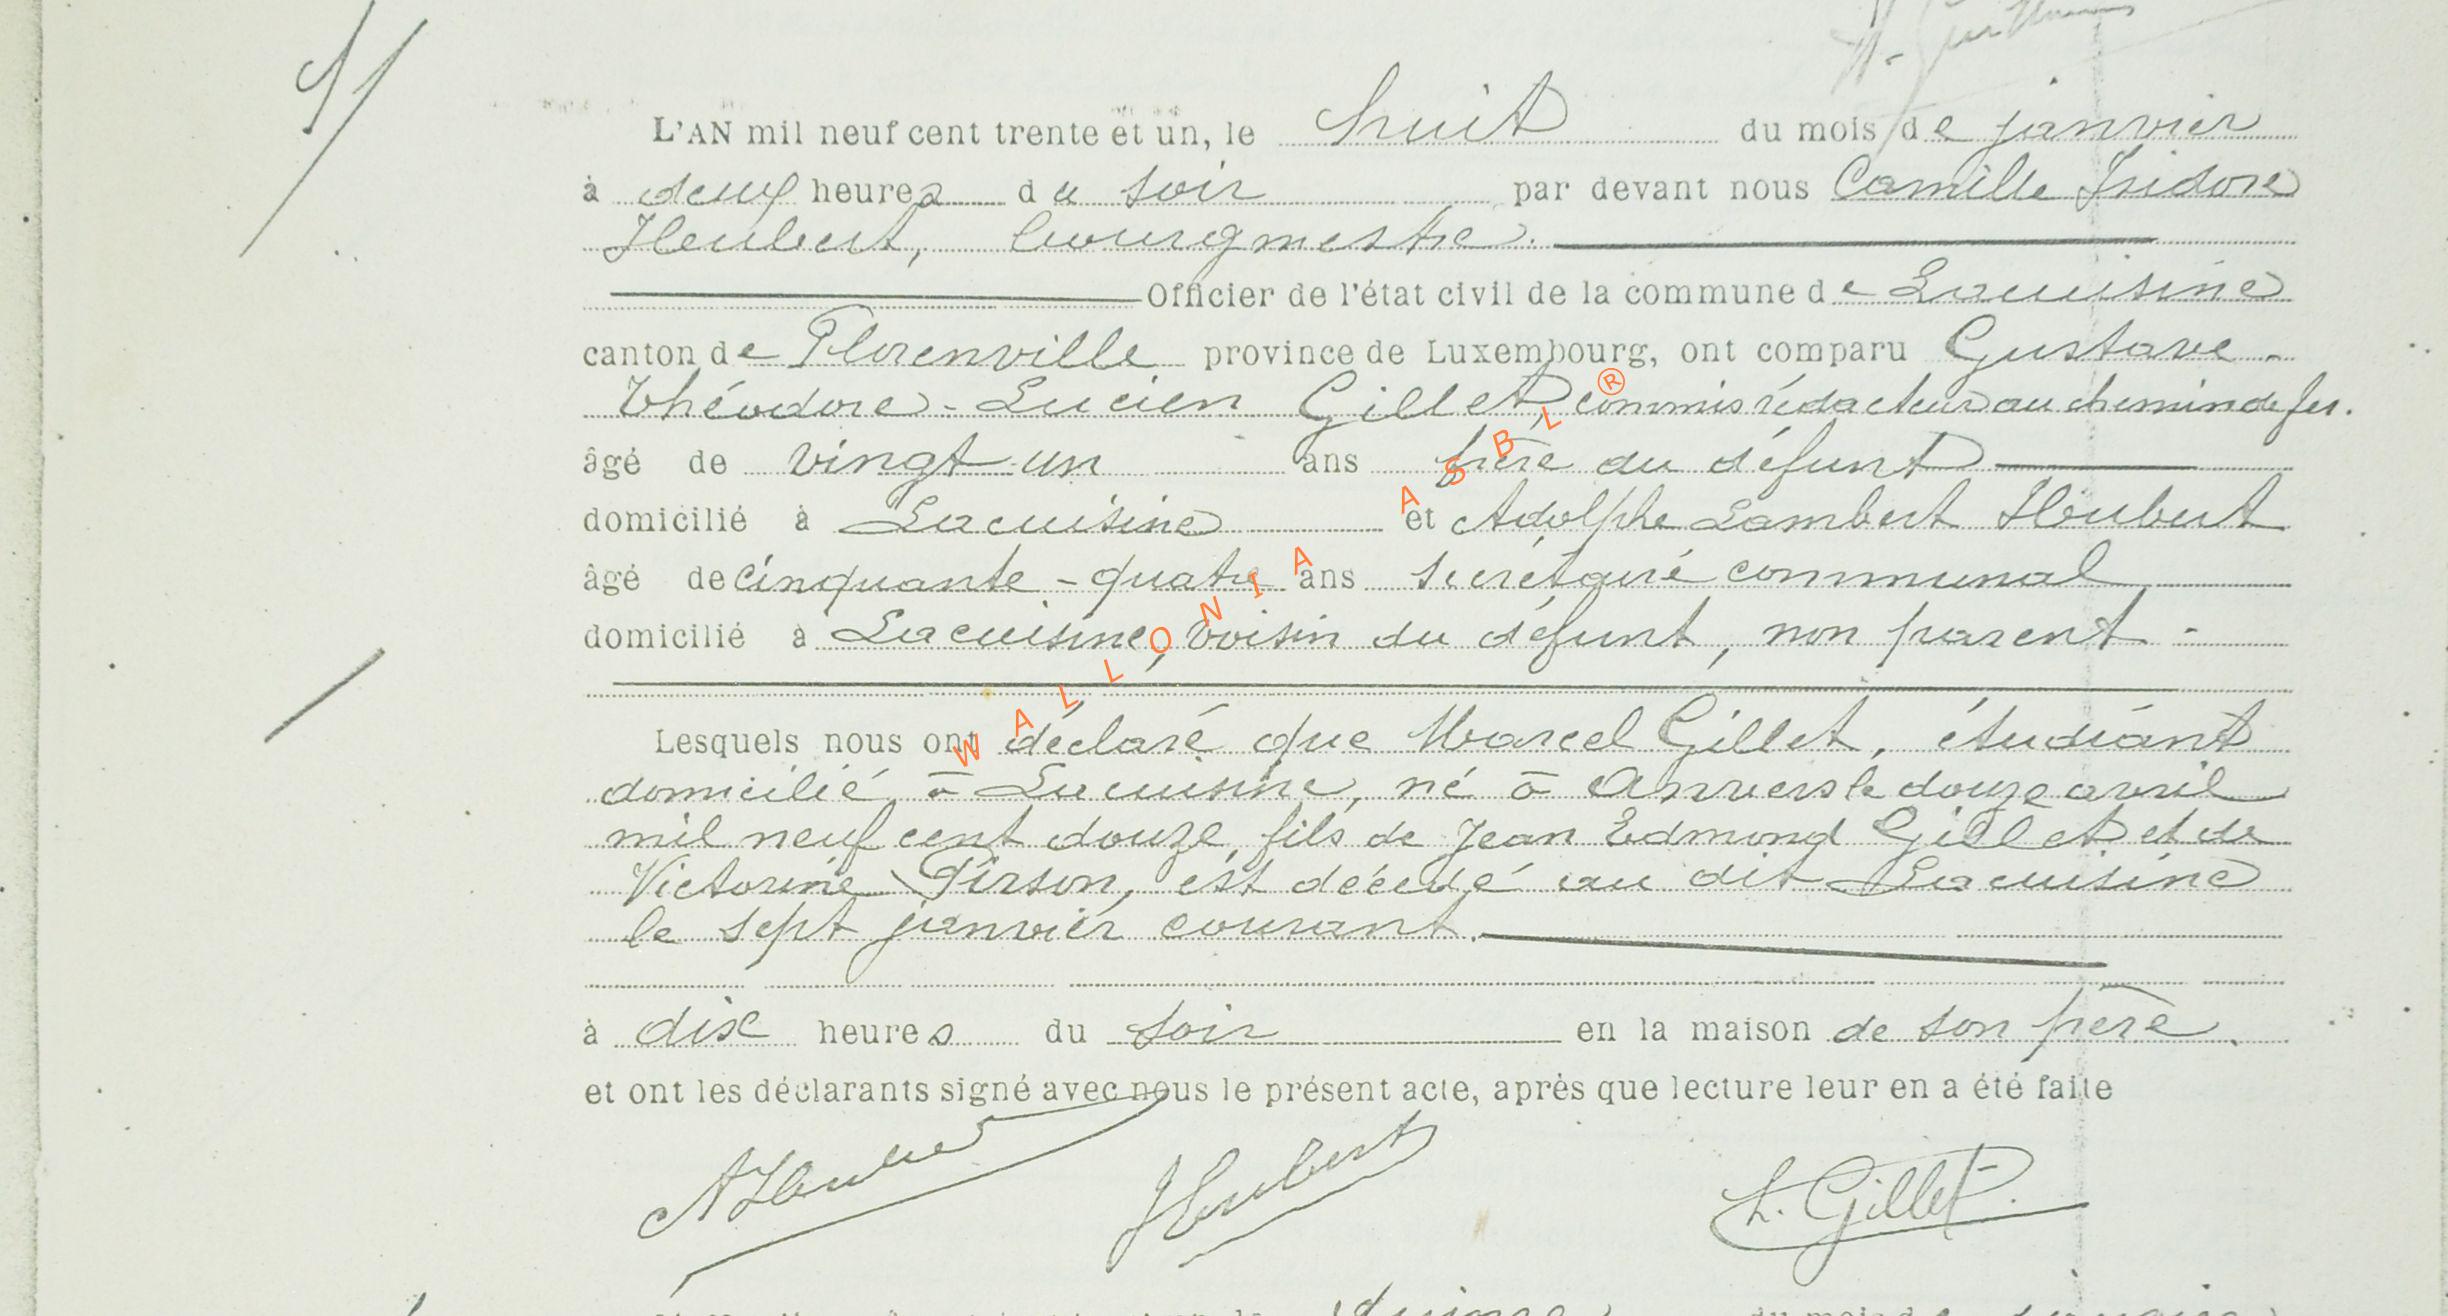 L'AN mil neuf cent trente et un, le huit du mois de janvier
à deux heures du soir par devant nous Camille Isidore
Heubert, bourgmestre.
Officier de l'état civil de la commune de Lacuisine
canton de Florenville province de Luxembourg, ont comparu Gustave-
Théodore-Lucien Gillet, commis rédacteur au chemin de fer.
âgé de vingt-un ans frère du défunt
domicilié à Lacuisine et Adolphe Lambert Houbert
âgé de cinquante-quatre ans secrétaire communal
domicilié à Lacuisine, voisin du défunt, non parent -
Lesquels nous ont déclaré que Marcel Gillet, étudiant
domicilié à Lacuisine, né à Anvers le douze avril
mil neuf cent douze, fils de Jean Edmond Gillet et de
Victorine Pirson, est décédé au dit Lacuisine
le sept janvier courant.
à dix heures du soir en la maison de son père.
et ont les déclarants signé avec nous le présent acte, après que lecture leur en a été faite
L. Gillet.
WALLONIA ASBL ®